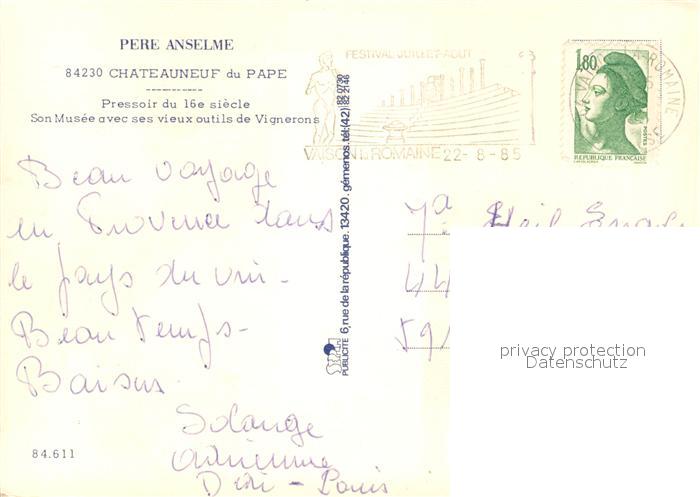 PERE ANSELME
84230 CHATEAUNEUF du PAPE
Pressoir du 16e siècle
Son Musée avec ses vieux outils de Vignerons
FESTIVAL JUILLET-AOUT
VAISON LA ROMAINE 22-8-85
1,80
POSTES
REPUBLIQUE FRANÇAISE
Beau voyage
en Provence dans
le pays du vin -
Beau temps -
Baisers
Solange
84.611
PUBLICITÉ 6, rue de la république. 13420. gémenos. tél: (42) 82 0730
82 21 46
44
privacy protection
Datenschutz